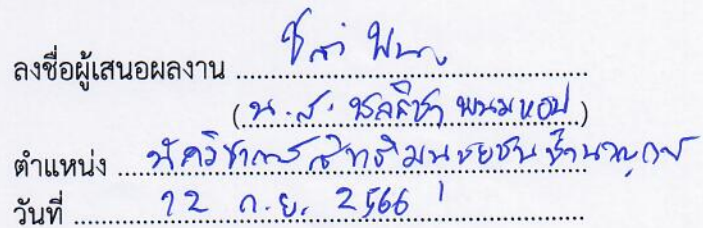 ลงชื่อผู้เสนอผลงาน
(น.ส. ชลธิชา พนมหอม)
ตำแหน่ง นักวิชาการสิทธิมนุษยชนชำนาญการ
วันที่ 22 ก.ย. 2566